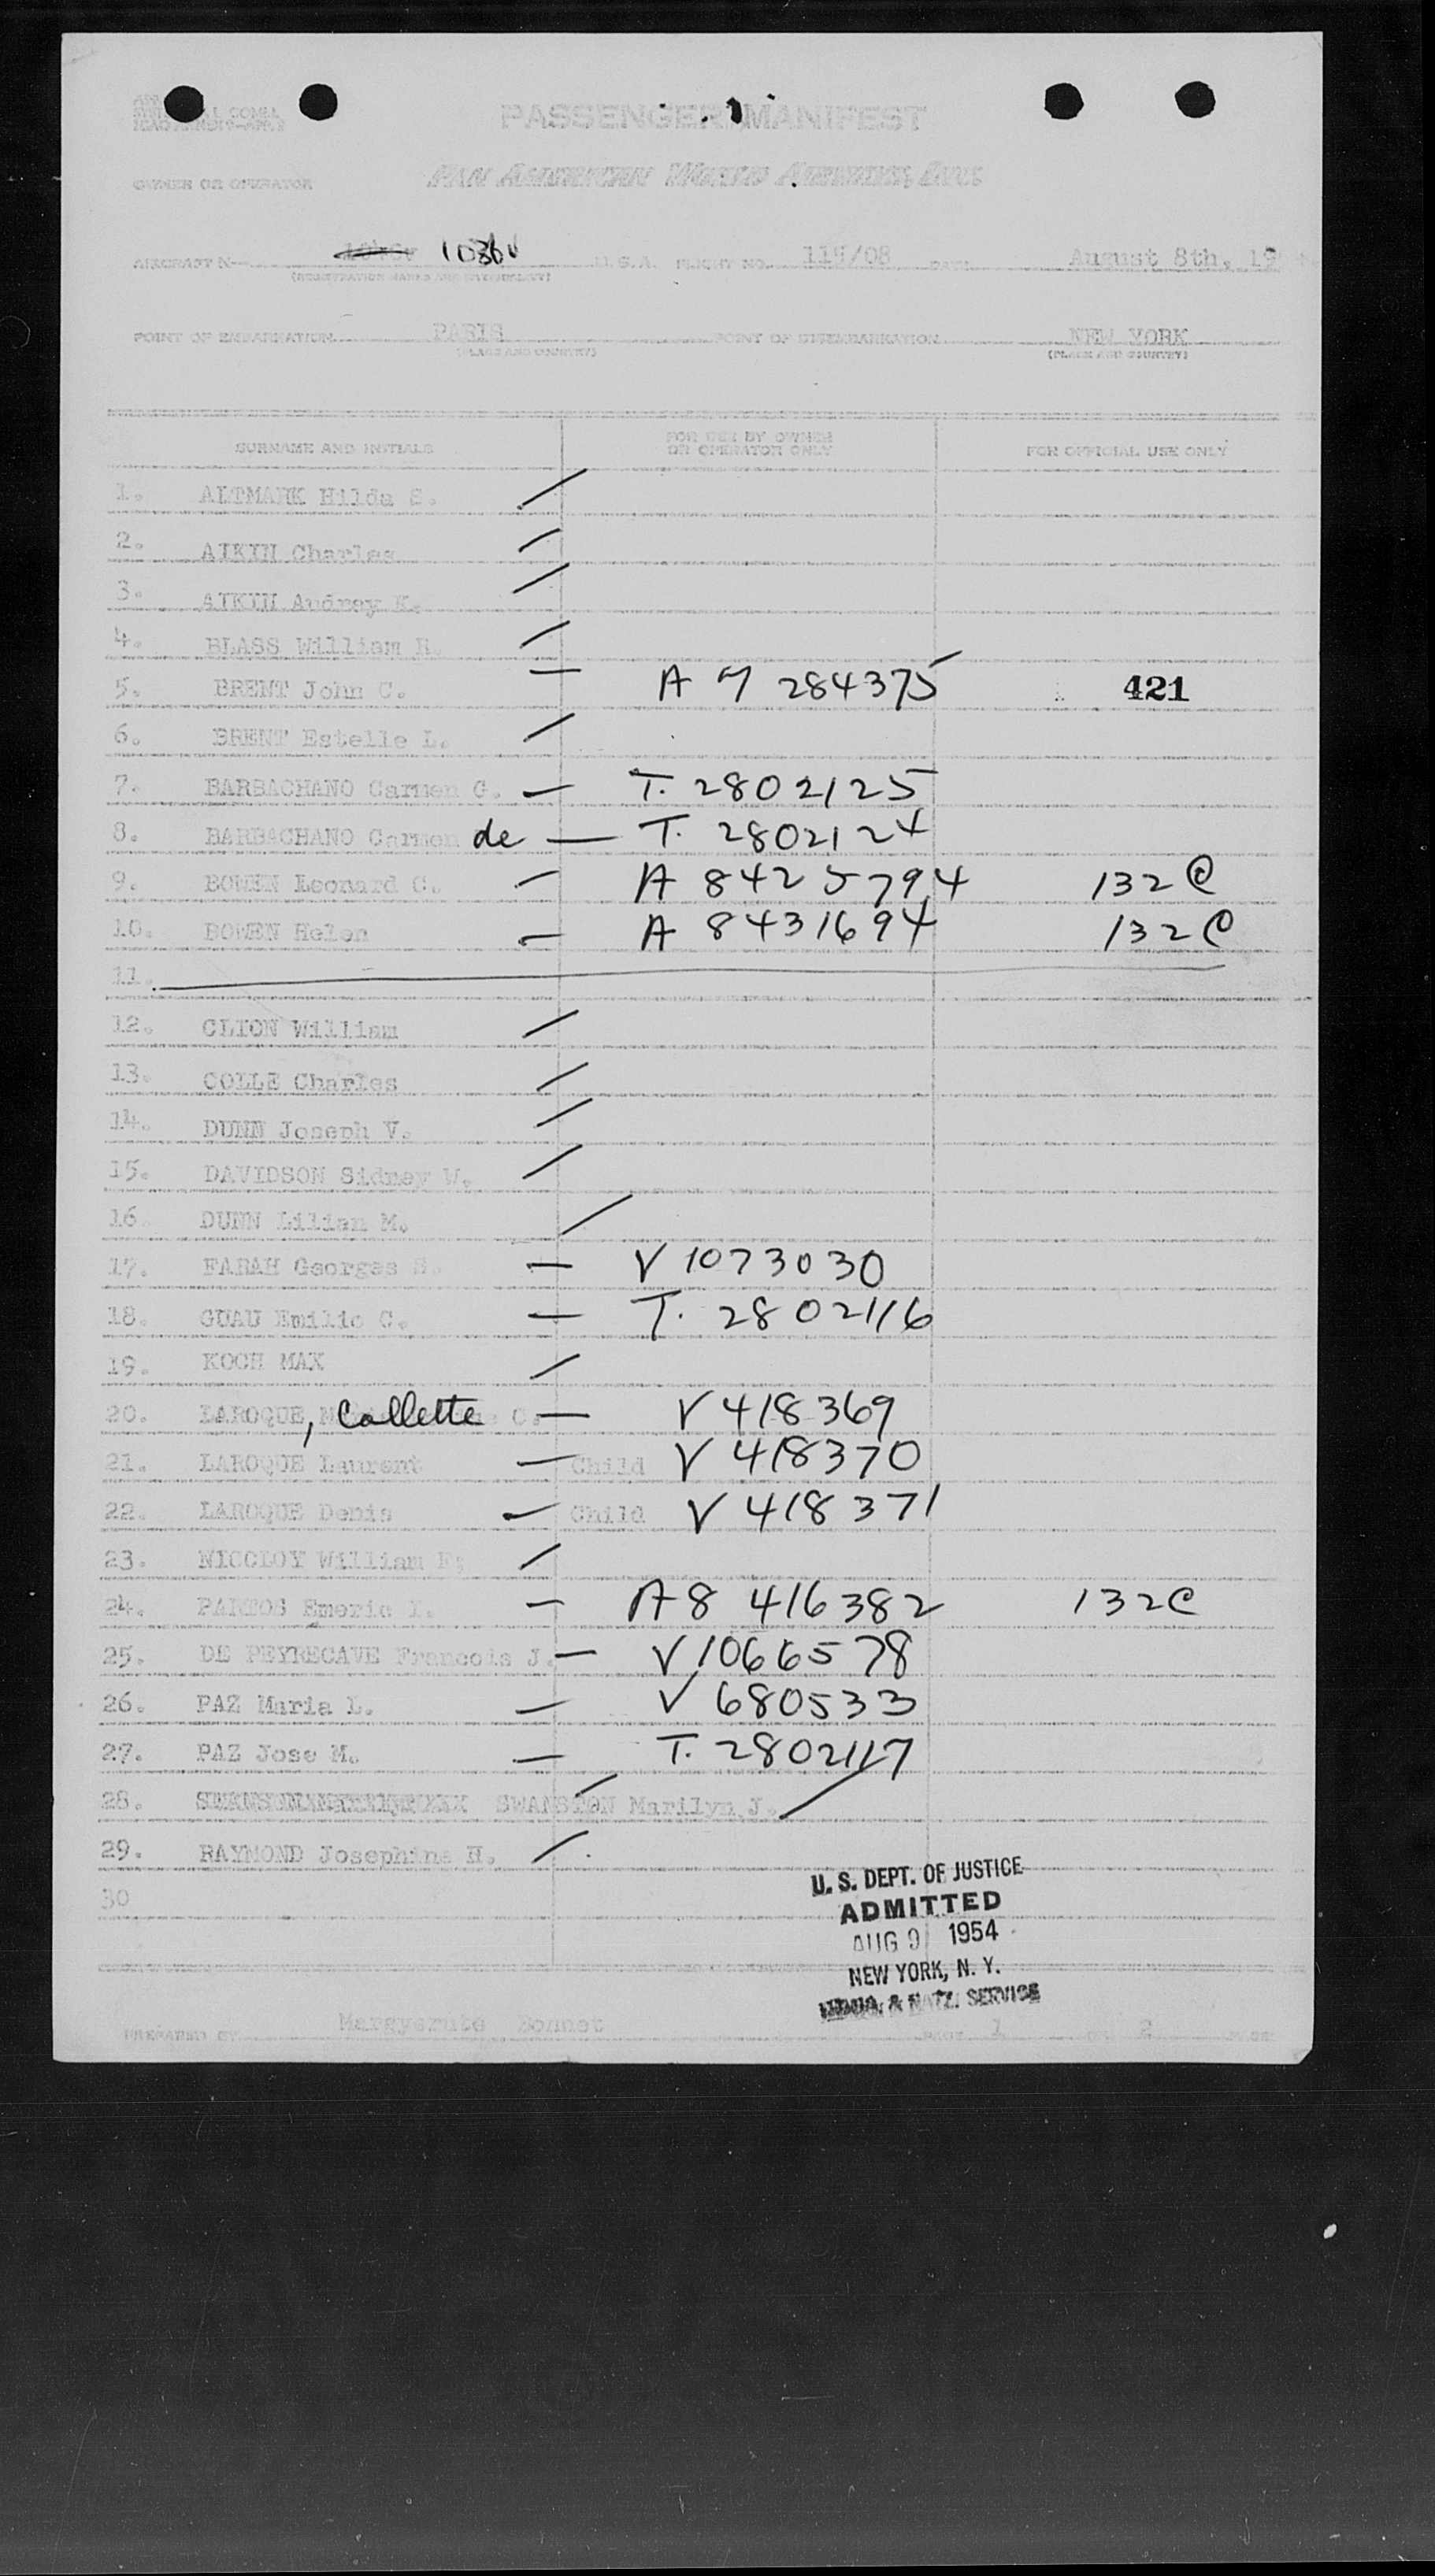 PASSENGER MANIFEST
OWNER OR OPERATOR PAN AMERICAN WORLD AIRWAYS, INC.
AIRCRAFT N— 1036V U.S.A. FLIGHT NO. 115/08 DATE August 8th, 19
(REGISTRATION MARKS AND NATIONALITY)
POINT OF EMBARKATION PARIS POINT OF DISEMBARKATION NEW YORK
(PLACE AND COUNTRY) (PLACE AND COUNTRY)
SURNAME AND INITIALS FOR USE BY OWNER OR OPERATOR ONLY FOR OFFICIAL USE ONLY
1. ALTMARK Hilda S.
2. AIKIN Charles
3. AIKIN Audrey K.
4. BLASS William R.
5. BRENT John C. A 7 284375 421
6. BRENT Estelle L.
7. BARBACHANO Carmen G. T. 2802125
8. BARBACHANO Carmen de T. 2802124
9. BOWEN Leonard C. A 8425794 132C
10. BOWEN Helen A 8431694 132C
11.
12. CLION William
13. COLLE Charles
14. DUNN Joseph V.
15. DAVIDSON Sidney W.
16. DUNN Lilian M.
17. FARAH Georges S. V 1073030
18. GUAU Emilio C. T. 2802116
19. KOCH MAX
20. LAROQUE, Collette C. V 418369
21. LAROQUE Laurent Child V 418370
22. LAROQUE Denis Child V 418371
23. NICCLOY William F.
24. PARTOS Emeric I. A8 416382 132C
25. DE PEYRECAVE Francois J. V 1066578
26. PAZ Maria L. V 680533
27. PAZ Jose M. T. 2802117
28. SWANSTON Marilyn J.
29. RAYMOND Josephine H.
30
U. S. DEPT. OF JUSTICE
ADMITTED
AUG 9 1954
NEW YORK, N. Y.
IMMIG. & NATZ. SERVICE
PREPARED BY Margyernite Bonnet PAGE 1 OF 2 PAGES